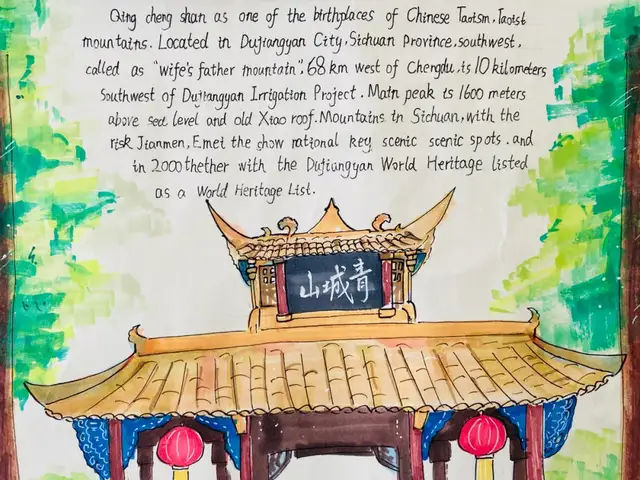 Qing cheng shan as one of the birthplaces of Chinese Taotsm, Taotst
mountains. Located in Dujiangyan City, Sichuan province, southwest,
called as "wife's father mountain", 68 km west of Chengdu, is 10 kilometers
Southwest of Dujiangyan Irrigation Project. Matn peak is 1600 meters
above sea level and old Xiao roof. Mountains in Sichuan, with the
risk Jianmen, Emei the show rational key scenic scenic spots. and
in 2000 thether with the Dujiangyan World Heritage listed
as a World Heritage List.
山城青